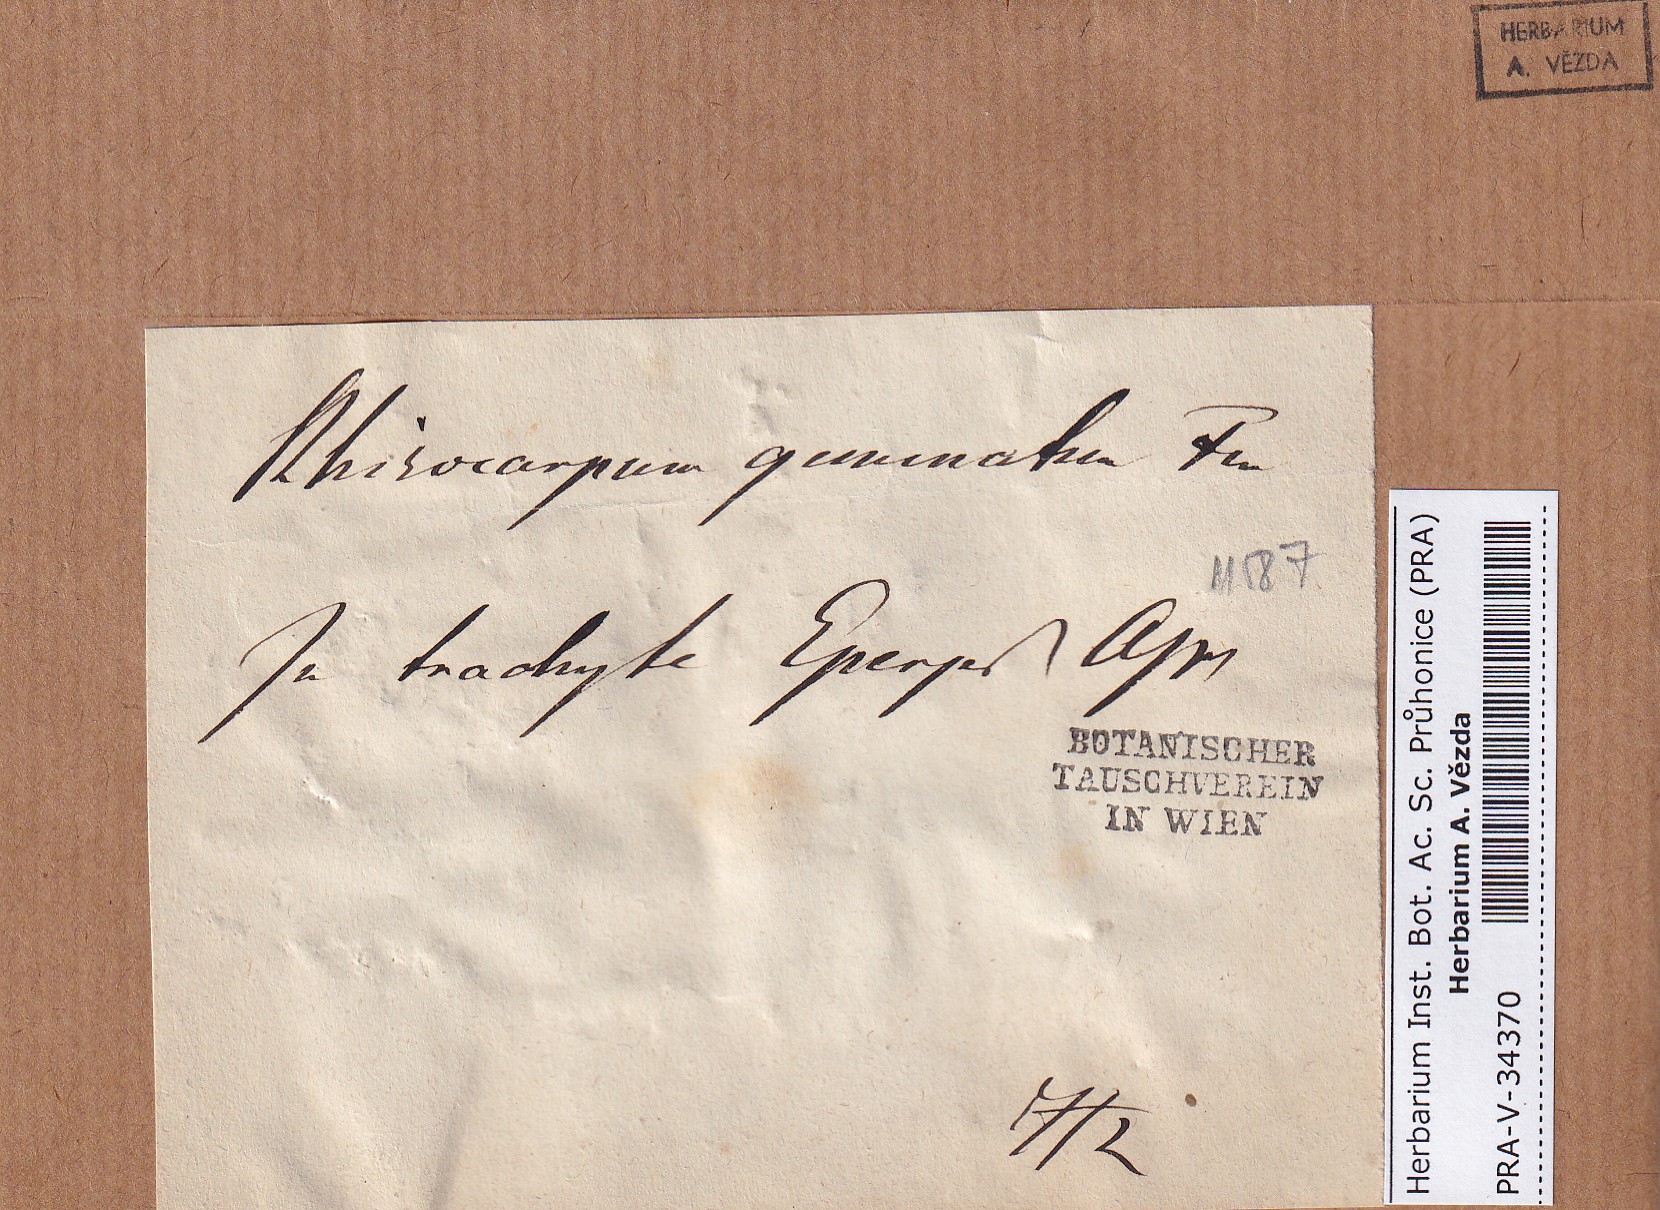 HERBARIUM
A. VĚZDA
Rhizocarpum geminatum
11187
In trachyte Eperjes
BOTANISCHER
TAUSCHVEREIN
IN WIEN
Herbarium Inst. Bot. Ac. Sc. Průhonice (PRA)
Herbarium A. Vězda
PRA-V-34370